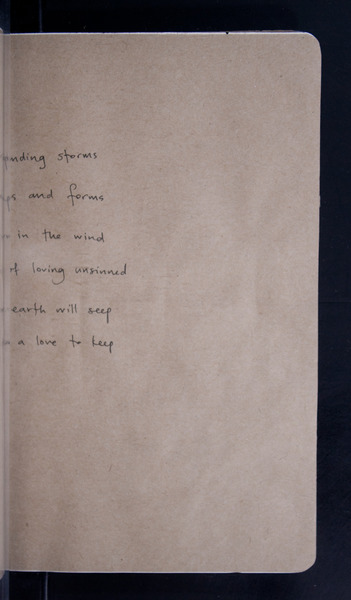 storms
and forms
in the wind
loving unsinned
earth will seep
a love to keep